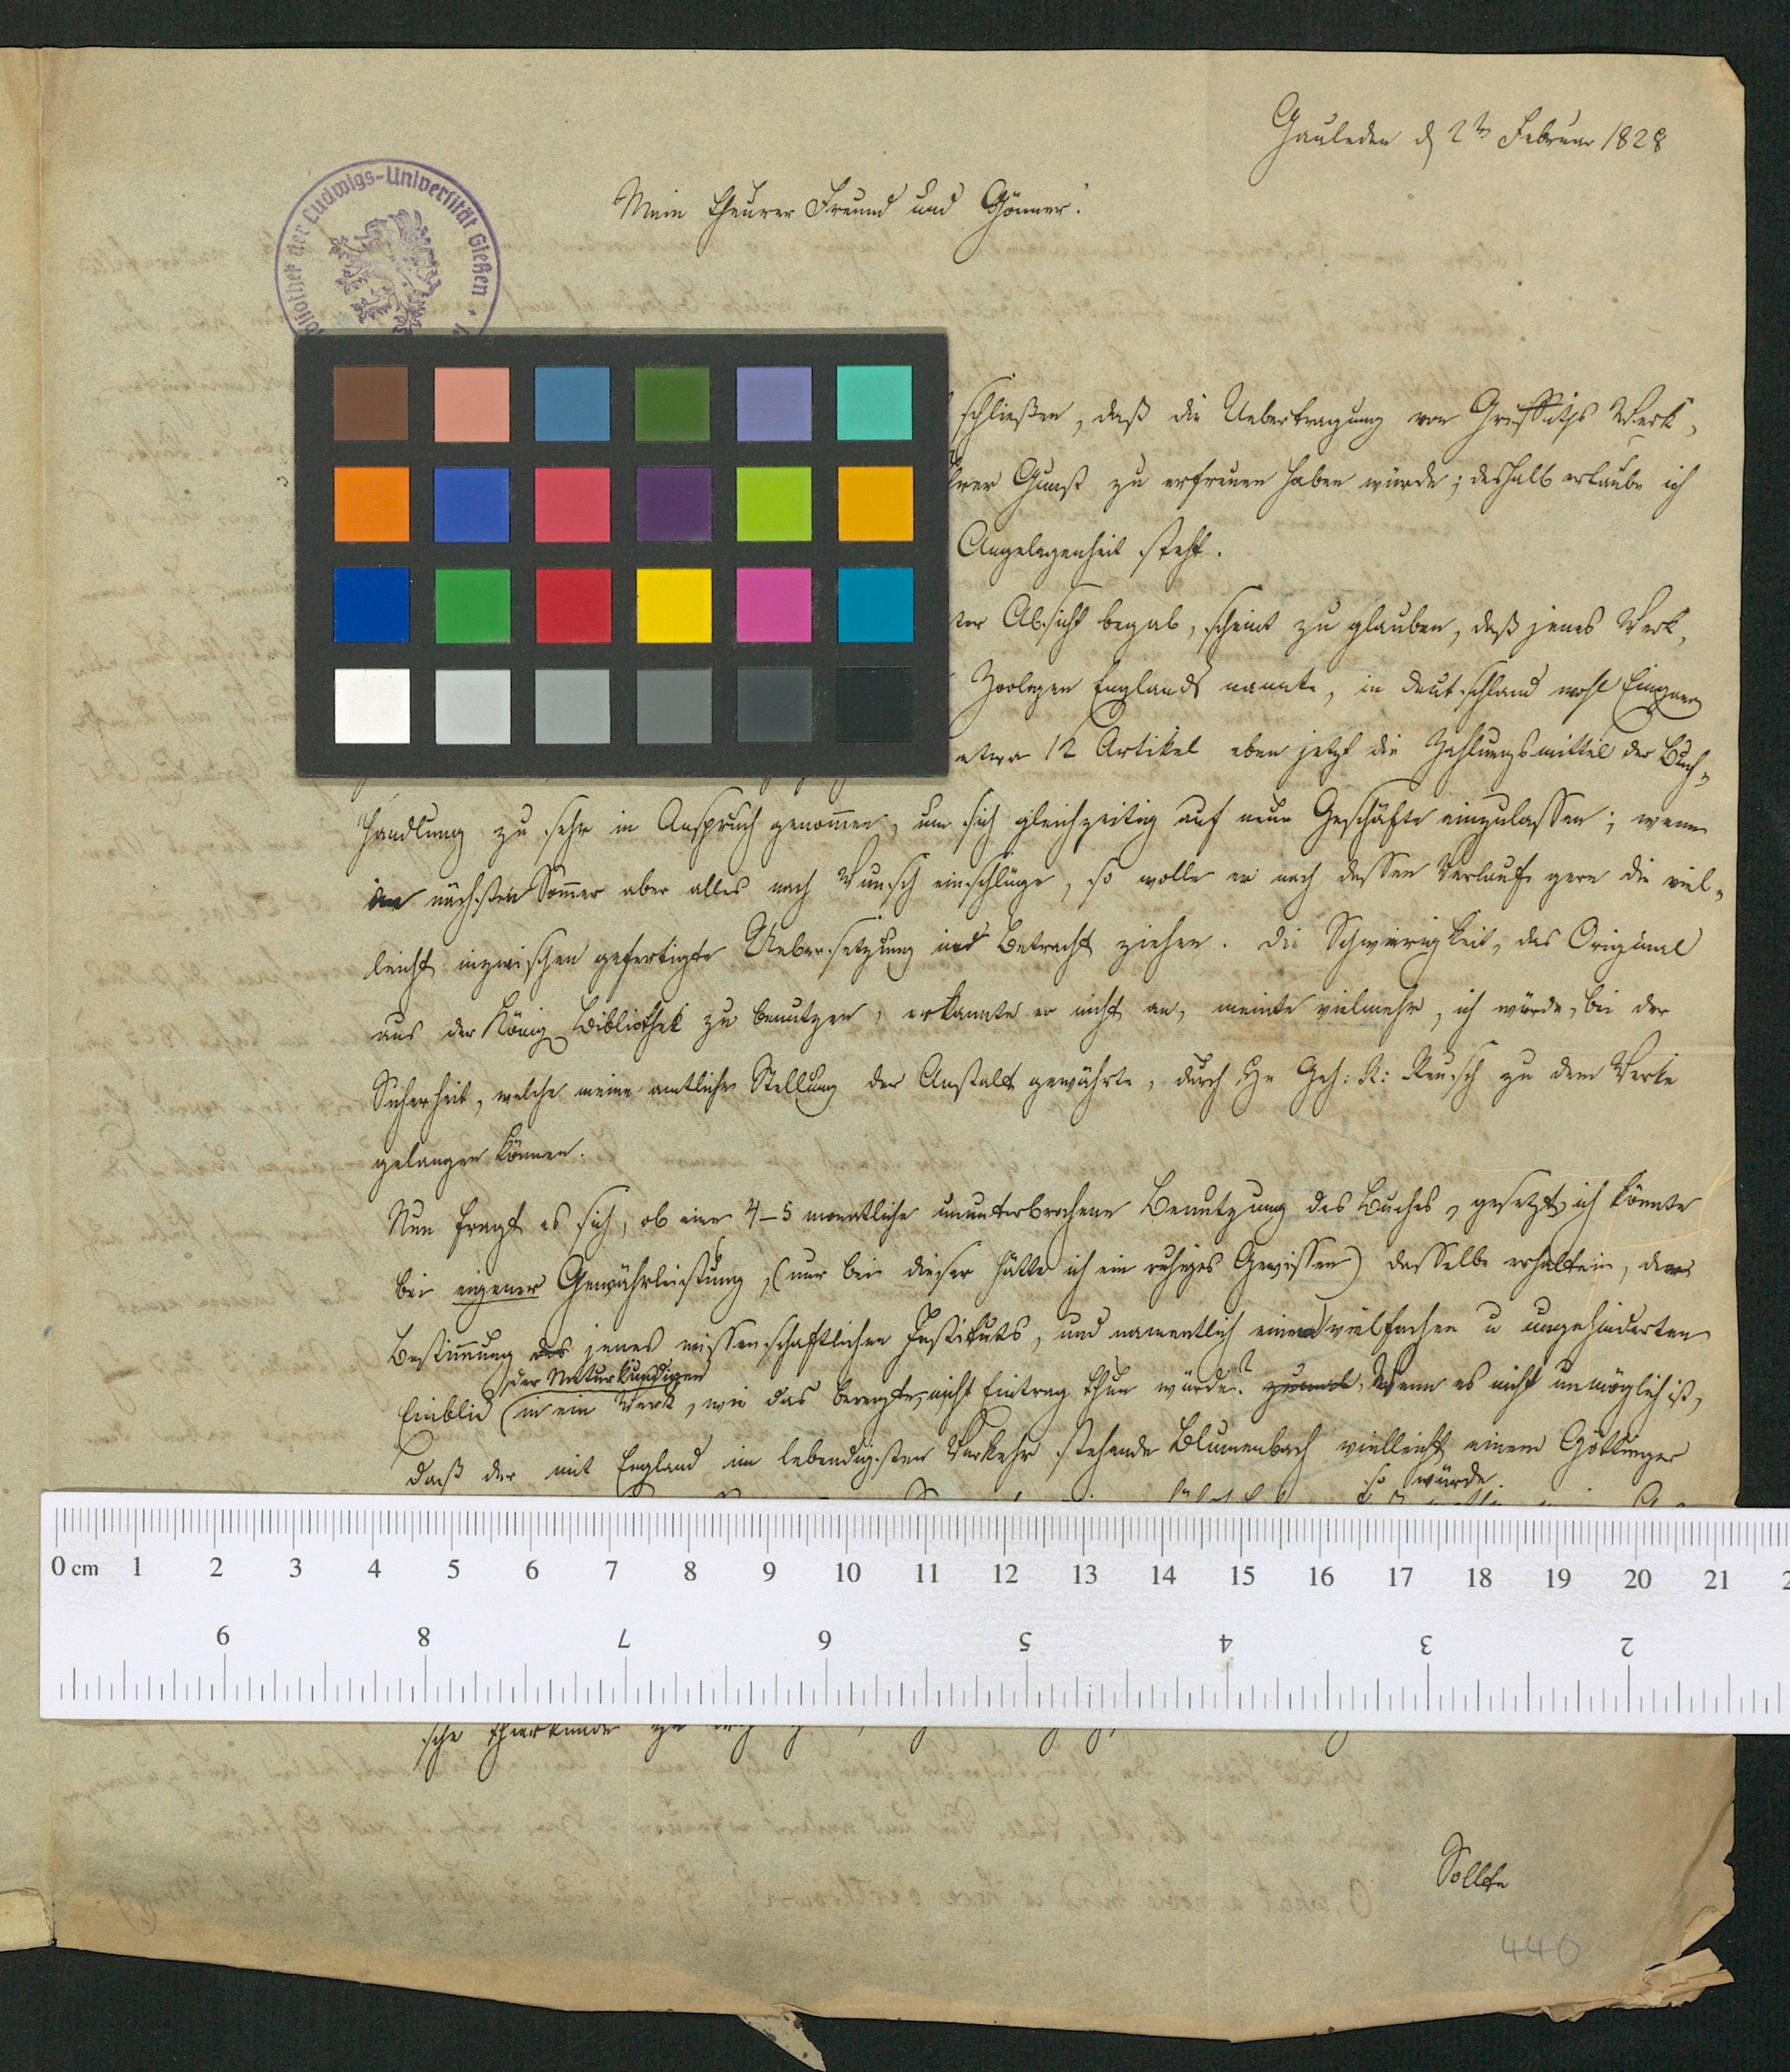 Gauleden d 2t Februar 1828
Mein theurer Freund und Gönner!
bliothek der Ludwigs-Universität Gießen
schließen, daß die Uebertragung von Griffiths Werk,
hrer Gunst zu erfreuen haben würde; deshalb erlaube ich
Angelegenheit steht.
ter Absicht begab, scheint zu glauben, daß jenes Werk,
Zoologen Englands nannte, in Deutschland wohl Eingang
etwa 12 Artikel eben jetzt die Zahlungsmittel der Buch-
handlung zu sehr in Anspruch genommen, um sich gleichzeitig auf neue Geschäfte einzulassen; wenn
im nächsten Sommer aber alles nach Wunsch einschlüge, so wolle er nach dessen Verlauf gern die viel-
leicht inzwischen gefertigte Uebersetzung in Betracht ziehen. Die Schwierigkeit, das Original
aus der Königl Bibliothek zu benutzen, erkannte er nicht an, meinte vielmehr, ich würde, bei der
Sicherheit, welche meine amtliche Stellung der Anstalt gewährte, durch Hr Geh: R: Reusch zu dem Werke
gelangen können.
Nun fragt es sich, ob eine 4-5 monatliche ununterbrochene Benutzung des Buches, gesetzt, ich könnte
bei eigener Gewährleistung, (nur bei dieser hätte ich ein ruhiges Gewissen) dasselbe erhalten, der
Bestimmung jenes wissenschaftlichen Instituts, und namentlich einem vielfachen u ungehinderten
der Naturkundigen
Einblick in ein Werk, wie das beregte, nicht Eintrag thun würde? zumal, Wenn es nicht unmöglich ist,
daß der mit England im lebendigsten Verkehr stehende Blumenbach vielleicht einem Göttinger
so würde
0 cm 1 2 3 4 5 6 7 8 9 10 11 12 13 14 15 16 17 18 19 20 21 2
9 8 7 6 5 4 3 2
sche Thierkunde zu
Sollte
440